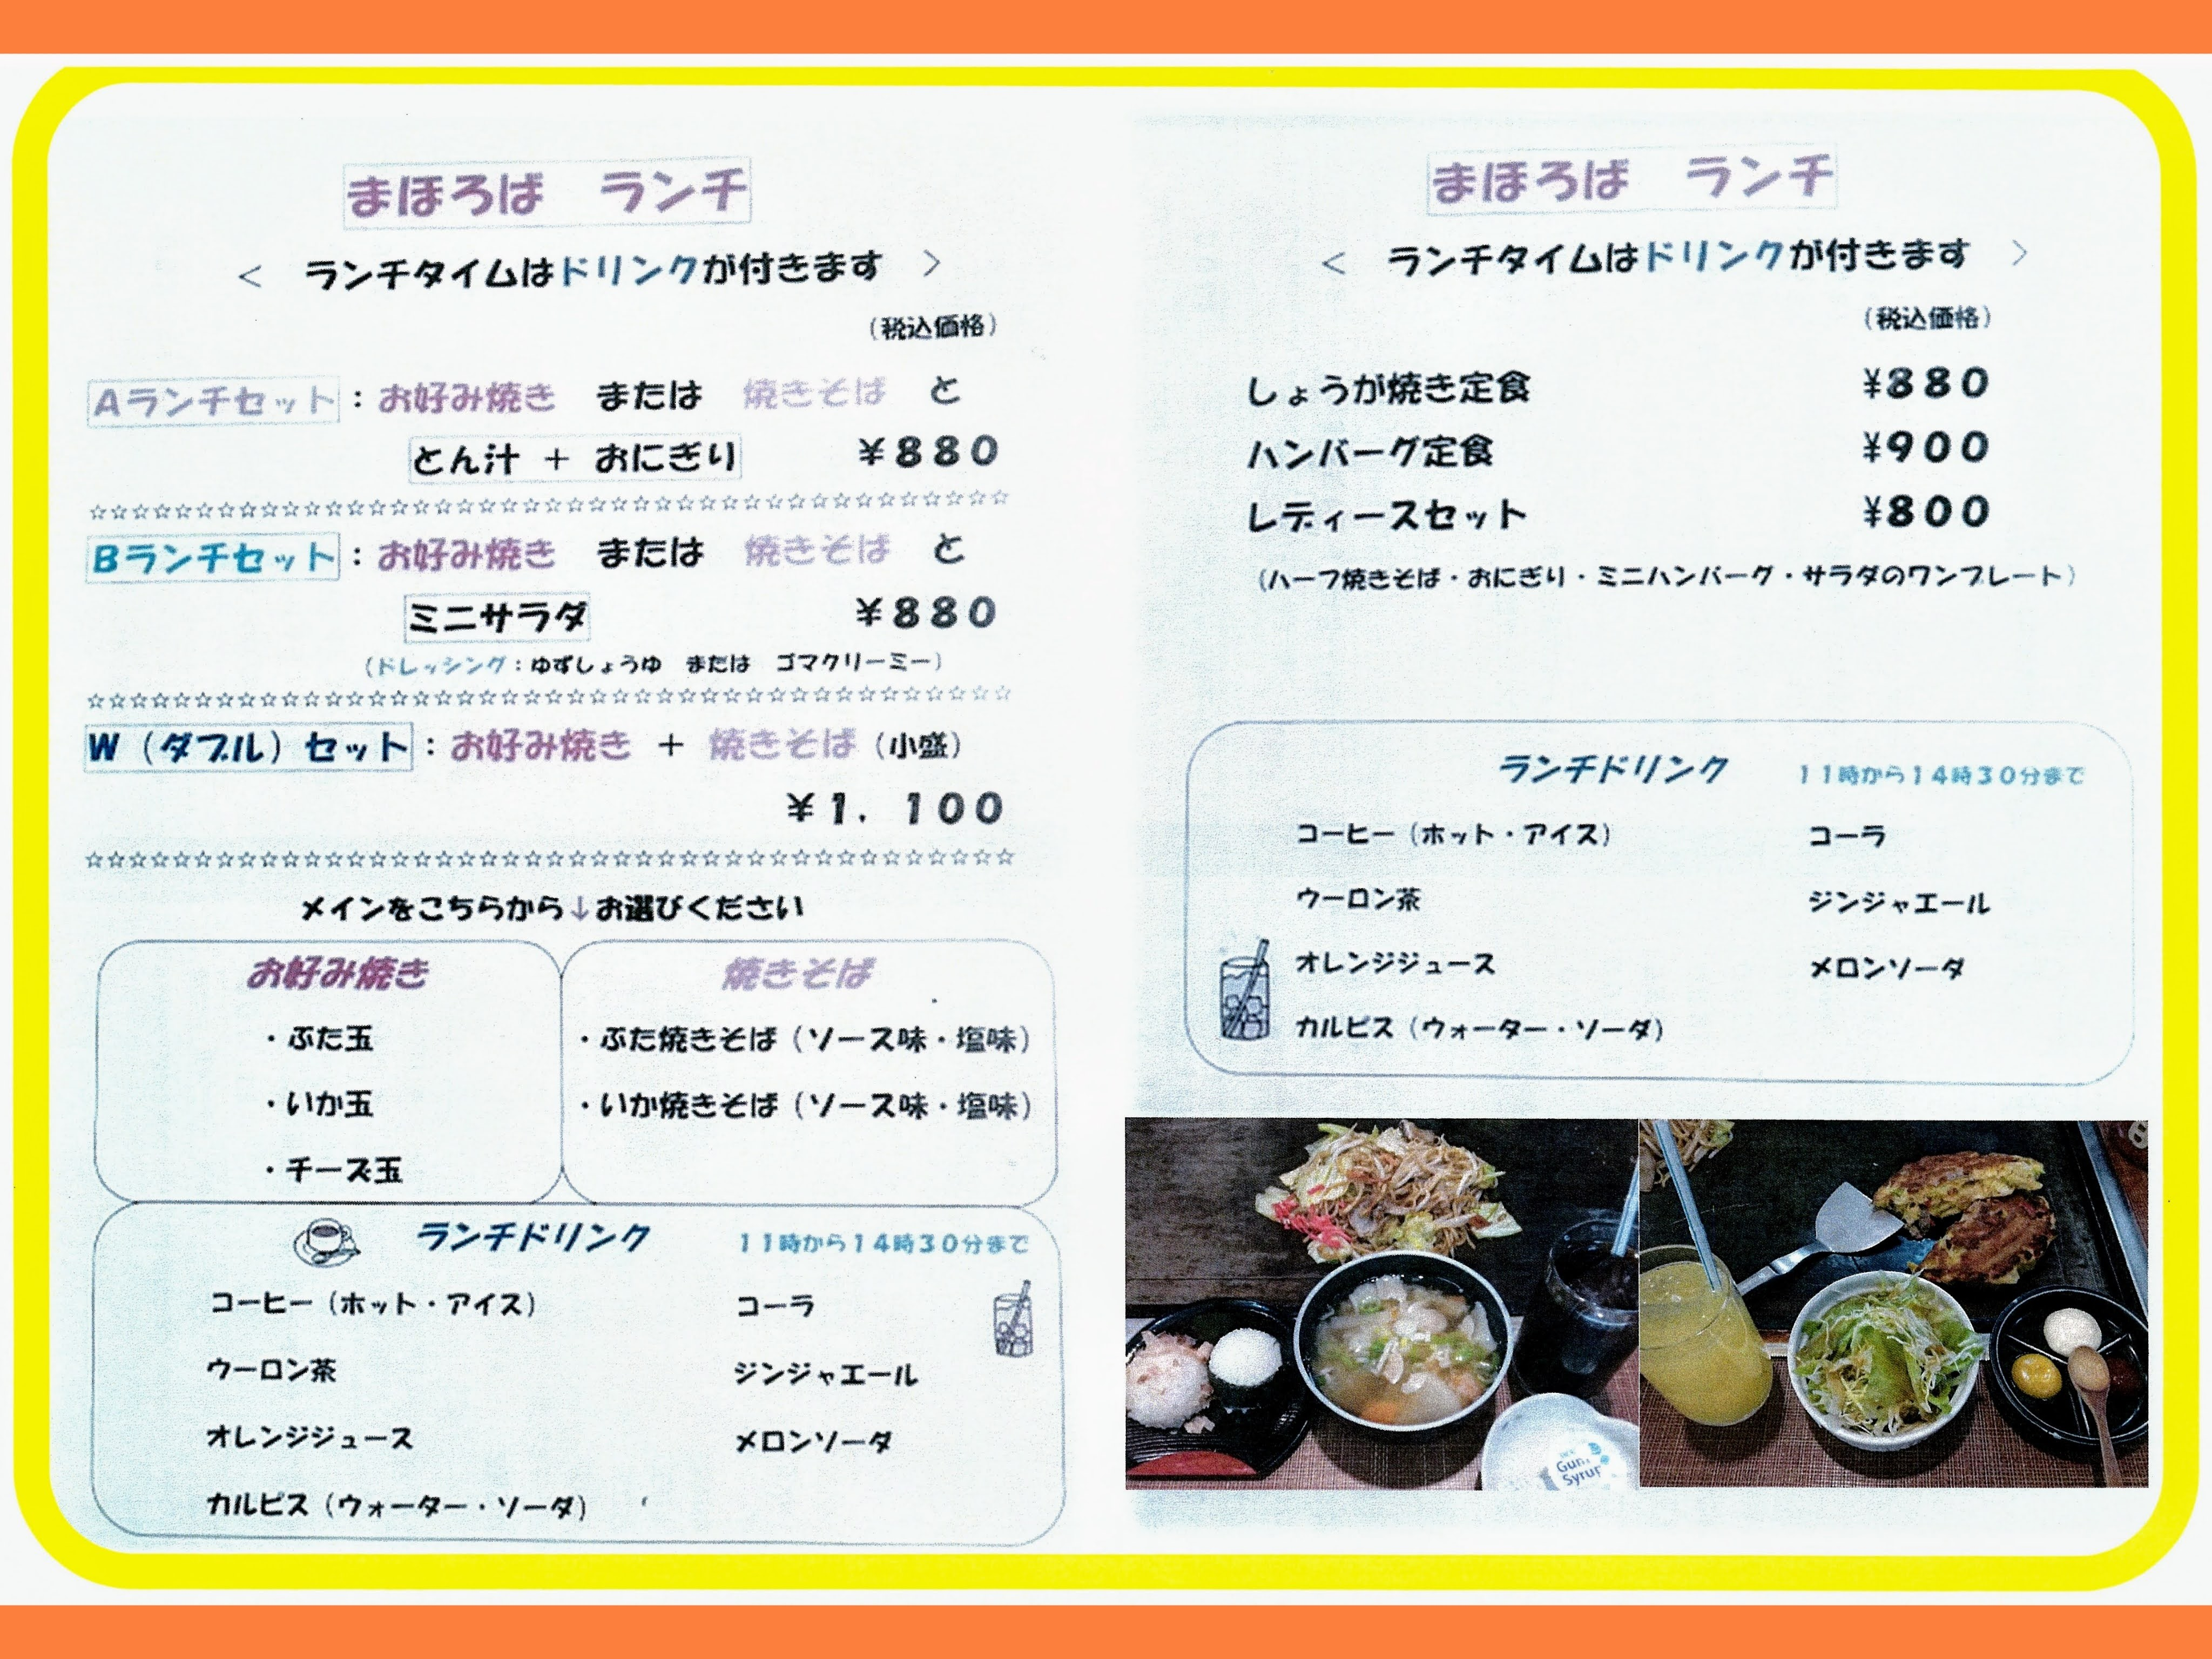 まほろば ランチ
< ランチタイムはドリンクが付きます >
(税込価格)
Aランチセット：お好み焼き または 焼きそば と
とん汁 + おにぎり ¥880
☆☆☆☆☆☆☆☆☆☆☆☆☆☆☆☆☆☆☆☆☆☆☆☆☆☆☆☆☆☆☆☆☆☆☆☆☆☆☆☆☆☆☆
Bランチセット：お好み焼き または 焼きそば と
ミニサラダ ¥880
(ドレッシング：ゆずしょうゆ または ゴマクリーミー)
☆☆☆☆☆☆☆☆☆☆☆☆☆☆☆☆☆☆☆☆☆☆☆☆☆☆☆☆☆☆☆☆☆☆☆☆☆☆☆☆☆☆☆
W（ダブル）セット：お好み焼き + 焼きそば（小盛）
¥1．100
☆☆☆☆☆☆☆☆☆☆☆☆☆☆☆☆☆☆☆☆☆☆☆☆☆☆☆☆☆☆☆☆☆☆☆☆☆☆☆☆☆☆☆
メインをこちらから↓お選びください
お好み焼き
・ぶた玉
・いか玉
・チーズ玉
焼きそば
・ぶた焼きそば（ソース味・塩味）
・いか焼きそば（ソース味・塩味）
ランチドリンク 11時から14時30分まで
コーヒー（ホット・アイス） コーラ
ウーロン茶 ジンジャエール
オレンジジュース メロンソーダ
カルピス（ウォーター・ソーダ）
まほろば ランチ
< ランチタイムはドリンクが付きます >
(税込価格)
しょうが焼き定食 ¥880
ハンバーグ定食 ¥900
レディースセット ¥800
(ハーフ焼きそば・おにぎり・ミニハンバーグ・サラダのワンプレート)
ランチドリンク 11時から14時30分まで
コーヒー（ホット・アイス） コーラ
ウーロン茶 ジンジャエール
オレンジジュース メロンソーダ
カルピス（ウォーター・ソーダ）
Syrup